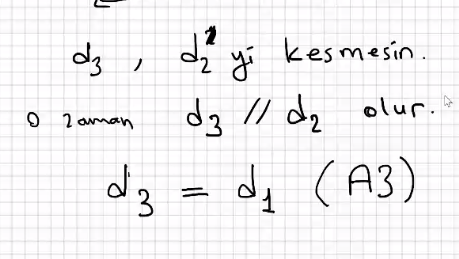 d₃ , d₂'yi kesmesin.
O zaman d₃ // d₂ olur.
d₃ = d₁ (A3)